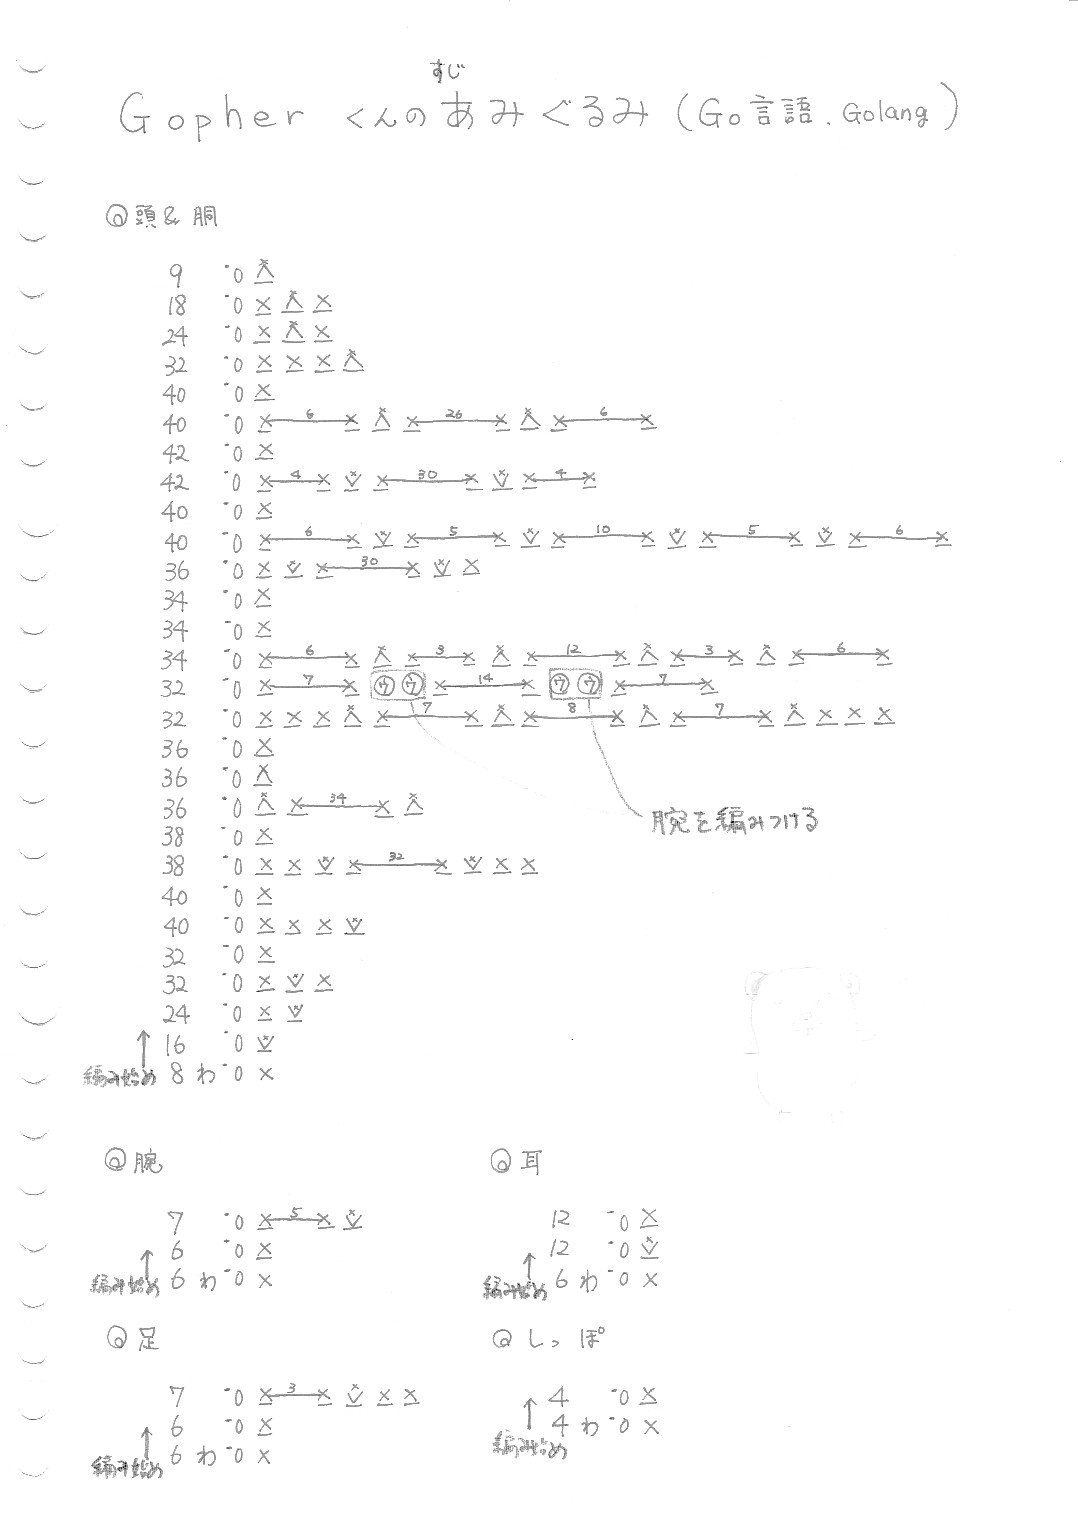 すじ
Gopher くんの あみぐるみ (Go言語、Golang)
頭& 胴
9 ̄0 ×
18 ̄0 × × ×
24 ̄0 × × ×
32 ̄0 × × × ×
40 ̄0 ×
40 ̄0 × 6 × × × 26 × × × 6 ×
42 ̄0 ×
42 ̄0 × 4 × × × 30 × × × 4 ×
40 ̄0 ×
40 ̄0 × 6 × × × 5 × × × 10 × × × 5 × × × 6 ×
36 ̄0 × × × 30 × × ×
34 ̄0 ×
34 ̄0 ×
34 ̄0 × 6 × × × 3 × × × 12 × × × 3 × × × 6 ×
32 ̄0 × 7 × ウ ウ × 14 × ウ ウ × 7 ×
32 ̄0 × × × × × 7 × × × 8 × × × 7 × × × × ×
36 ̄0 ×
36 ̄0 ×
36 ̄0 × × 34 × ×
腕を編みつける
38 ̄0 ×
38 ̄0 × × × × 32 × × × ×
40 ̄0 ×
40 ̄0 × × × ×
32 ̄0 ×
32 ̄0 × × ×
24 ̄0 × ×
↑ 16 ̄0 ×
編み始め 8 わ ̄0 ×
腕
7 ̄0 × 5 × ×
↑ 6 ̄0 ×
編み始め 6 わ ̄0 ×
耳
12 ̄0 ×
↑ 12 ̄0 ×
編み始め 6 わ ̄0 ×
足
7 ̄0 × 3 × × × ×
↑ 6 ̄0 ×
編み始め 6 わ ̄0 ×
しっぽ
↑ 4 ̄0 ×
4 わ ̄0 ×
編み始め